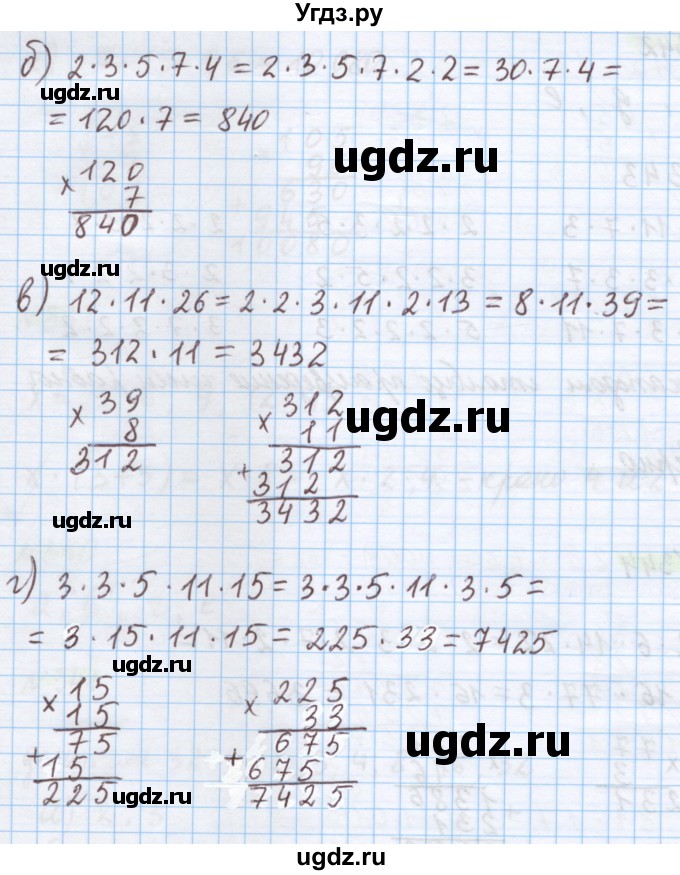 Угдз.ру
б) 2·3·5·7·4 = 2·3·5·7·2·2 = 30·7·4 =
ugdz.ru
= 120·7 = 840
ugdz.ru
× 120
7
840
ugdz.ru
в) 12·11·26 = 2·2·3·11·2·13 = 8·11·39 =
= 312·11 = 3432
ugdz.ru
× 39
8
312
× 312
11
312
+
312
3432
ugdz.ru
ugdz.ru
г) 3·3·5·11·15 = 3·3·5·11·3·5 =
= 3·15·11·15 = 225·33 = 7425
ugdz.ru
× 15
15
75
+
15
225
ugdz.ru
× 225
33
675
+
675
7425
ugdz.ru
ugdz.ru